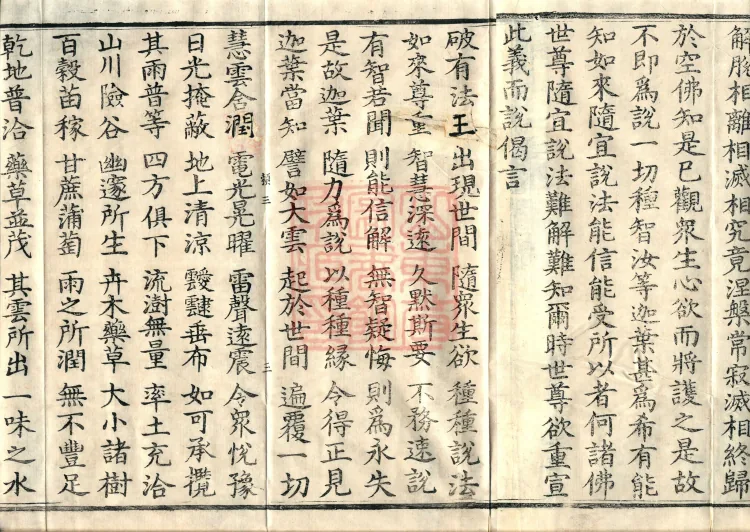 解脫相離相滅相究竟涅槃常寂滅相終歸
於空佛知是已觀衆生心欲而將護之是故
不即爲說一切種智汝等迦葉甚爲希有能
知如來隨宜說法能信能受所以者何諸佛
世尊隨宜說法難解難知爾時世尊欲重宣
此義而說偈言
破有法王 出現世間 隨衆生欲 種種說法
如來尊重 智慧深遠 久默斯要 不務速說
有智若聞 則能信解 無智疑悔 則爲永失
是故迦葉 隨力爲說 以種種緣 令得正見
迦葉當知 譬如大雲 起於世間 遍覆一切
慧雲含潤 電光晃曜 雷聲遠震 令衆悅豫
頻三 三
日光掩蔽 地上清涼 靉靆垂布 如可承攬
其雨普等 四方俱下 流澍無量 率土充洽
山川險谷 幽邃所生 卉木藥草 大小諸樹
百穀苗稼 甘蔗蒲萄 雨之所潤 無不豐足
乾地普洽 藥草並茂 其雲所出 一味之水